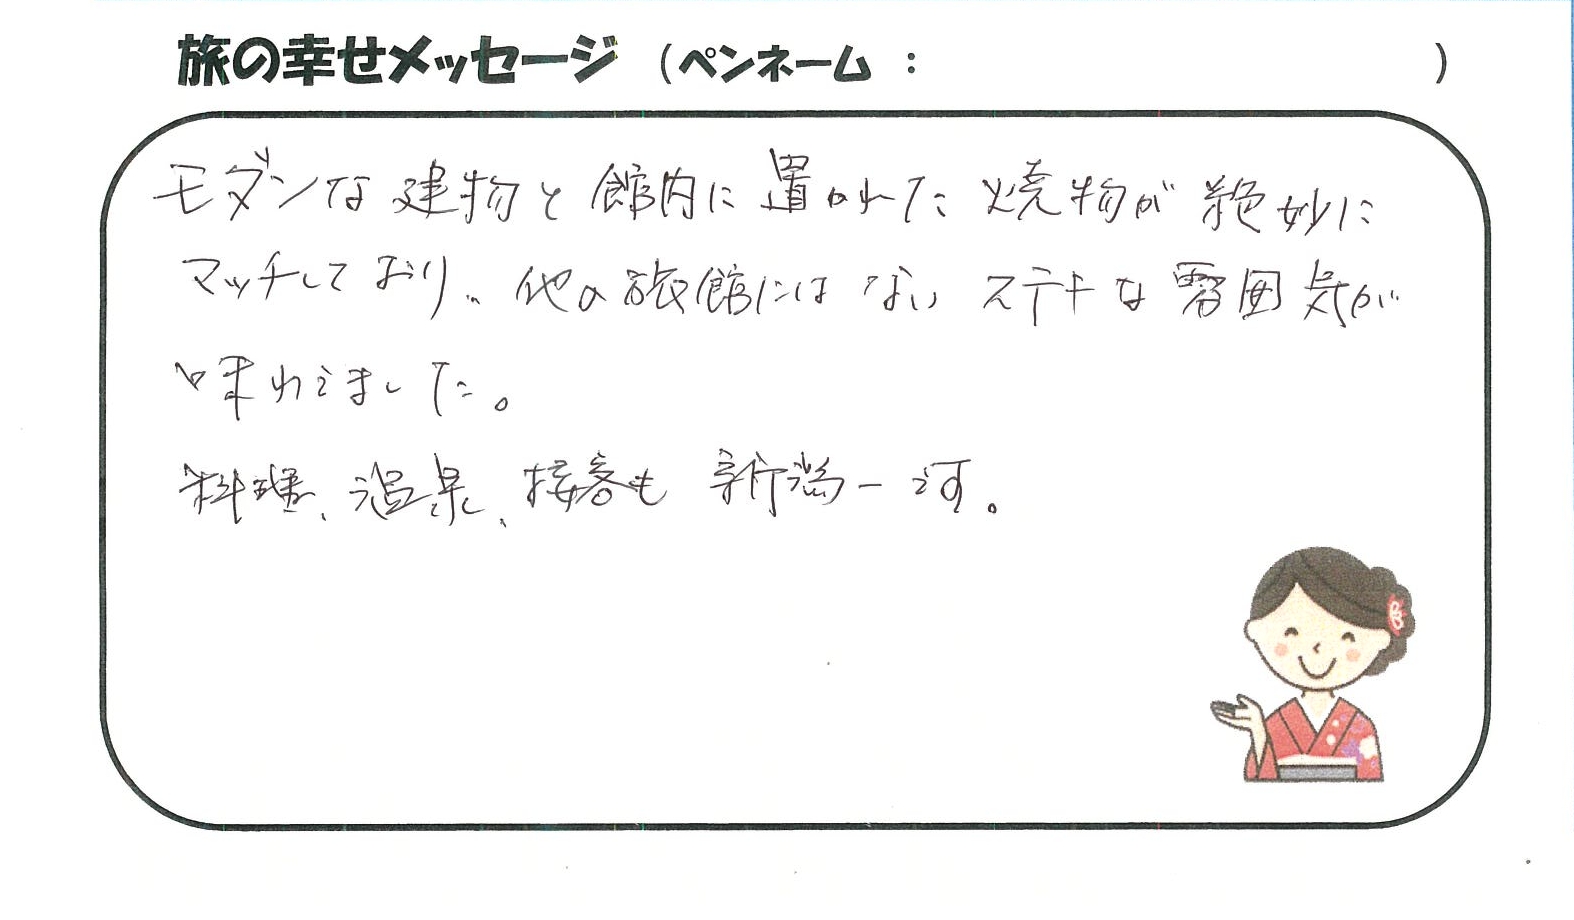 旅の幸せメッセージ（ペンネーム：　　　　　）
モダンな建物と館内に置かれた焼物が絶妙に
マッチしており、他の旅館にはないステキな雰囲気が
味わえました。
料理、温泉、接客も新潟一です。